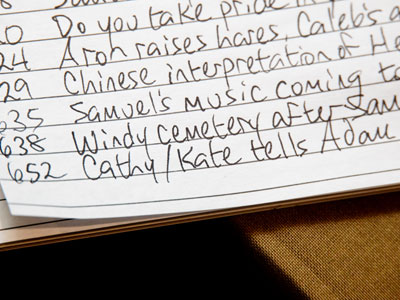 Do you take pride in
24 Aron raises hares, Caleb's
29 Chinese interpretation of He
635 Samuel's music coming to
638 Windy cemetery after Sam
652 Cathy/Kate tells Adam